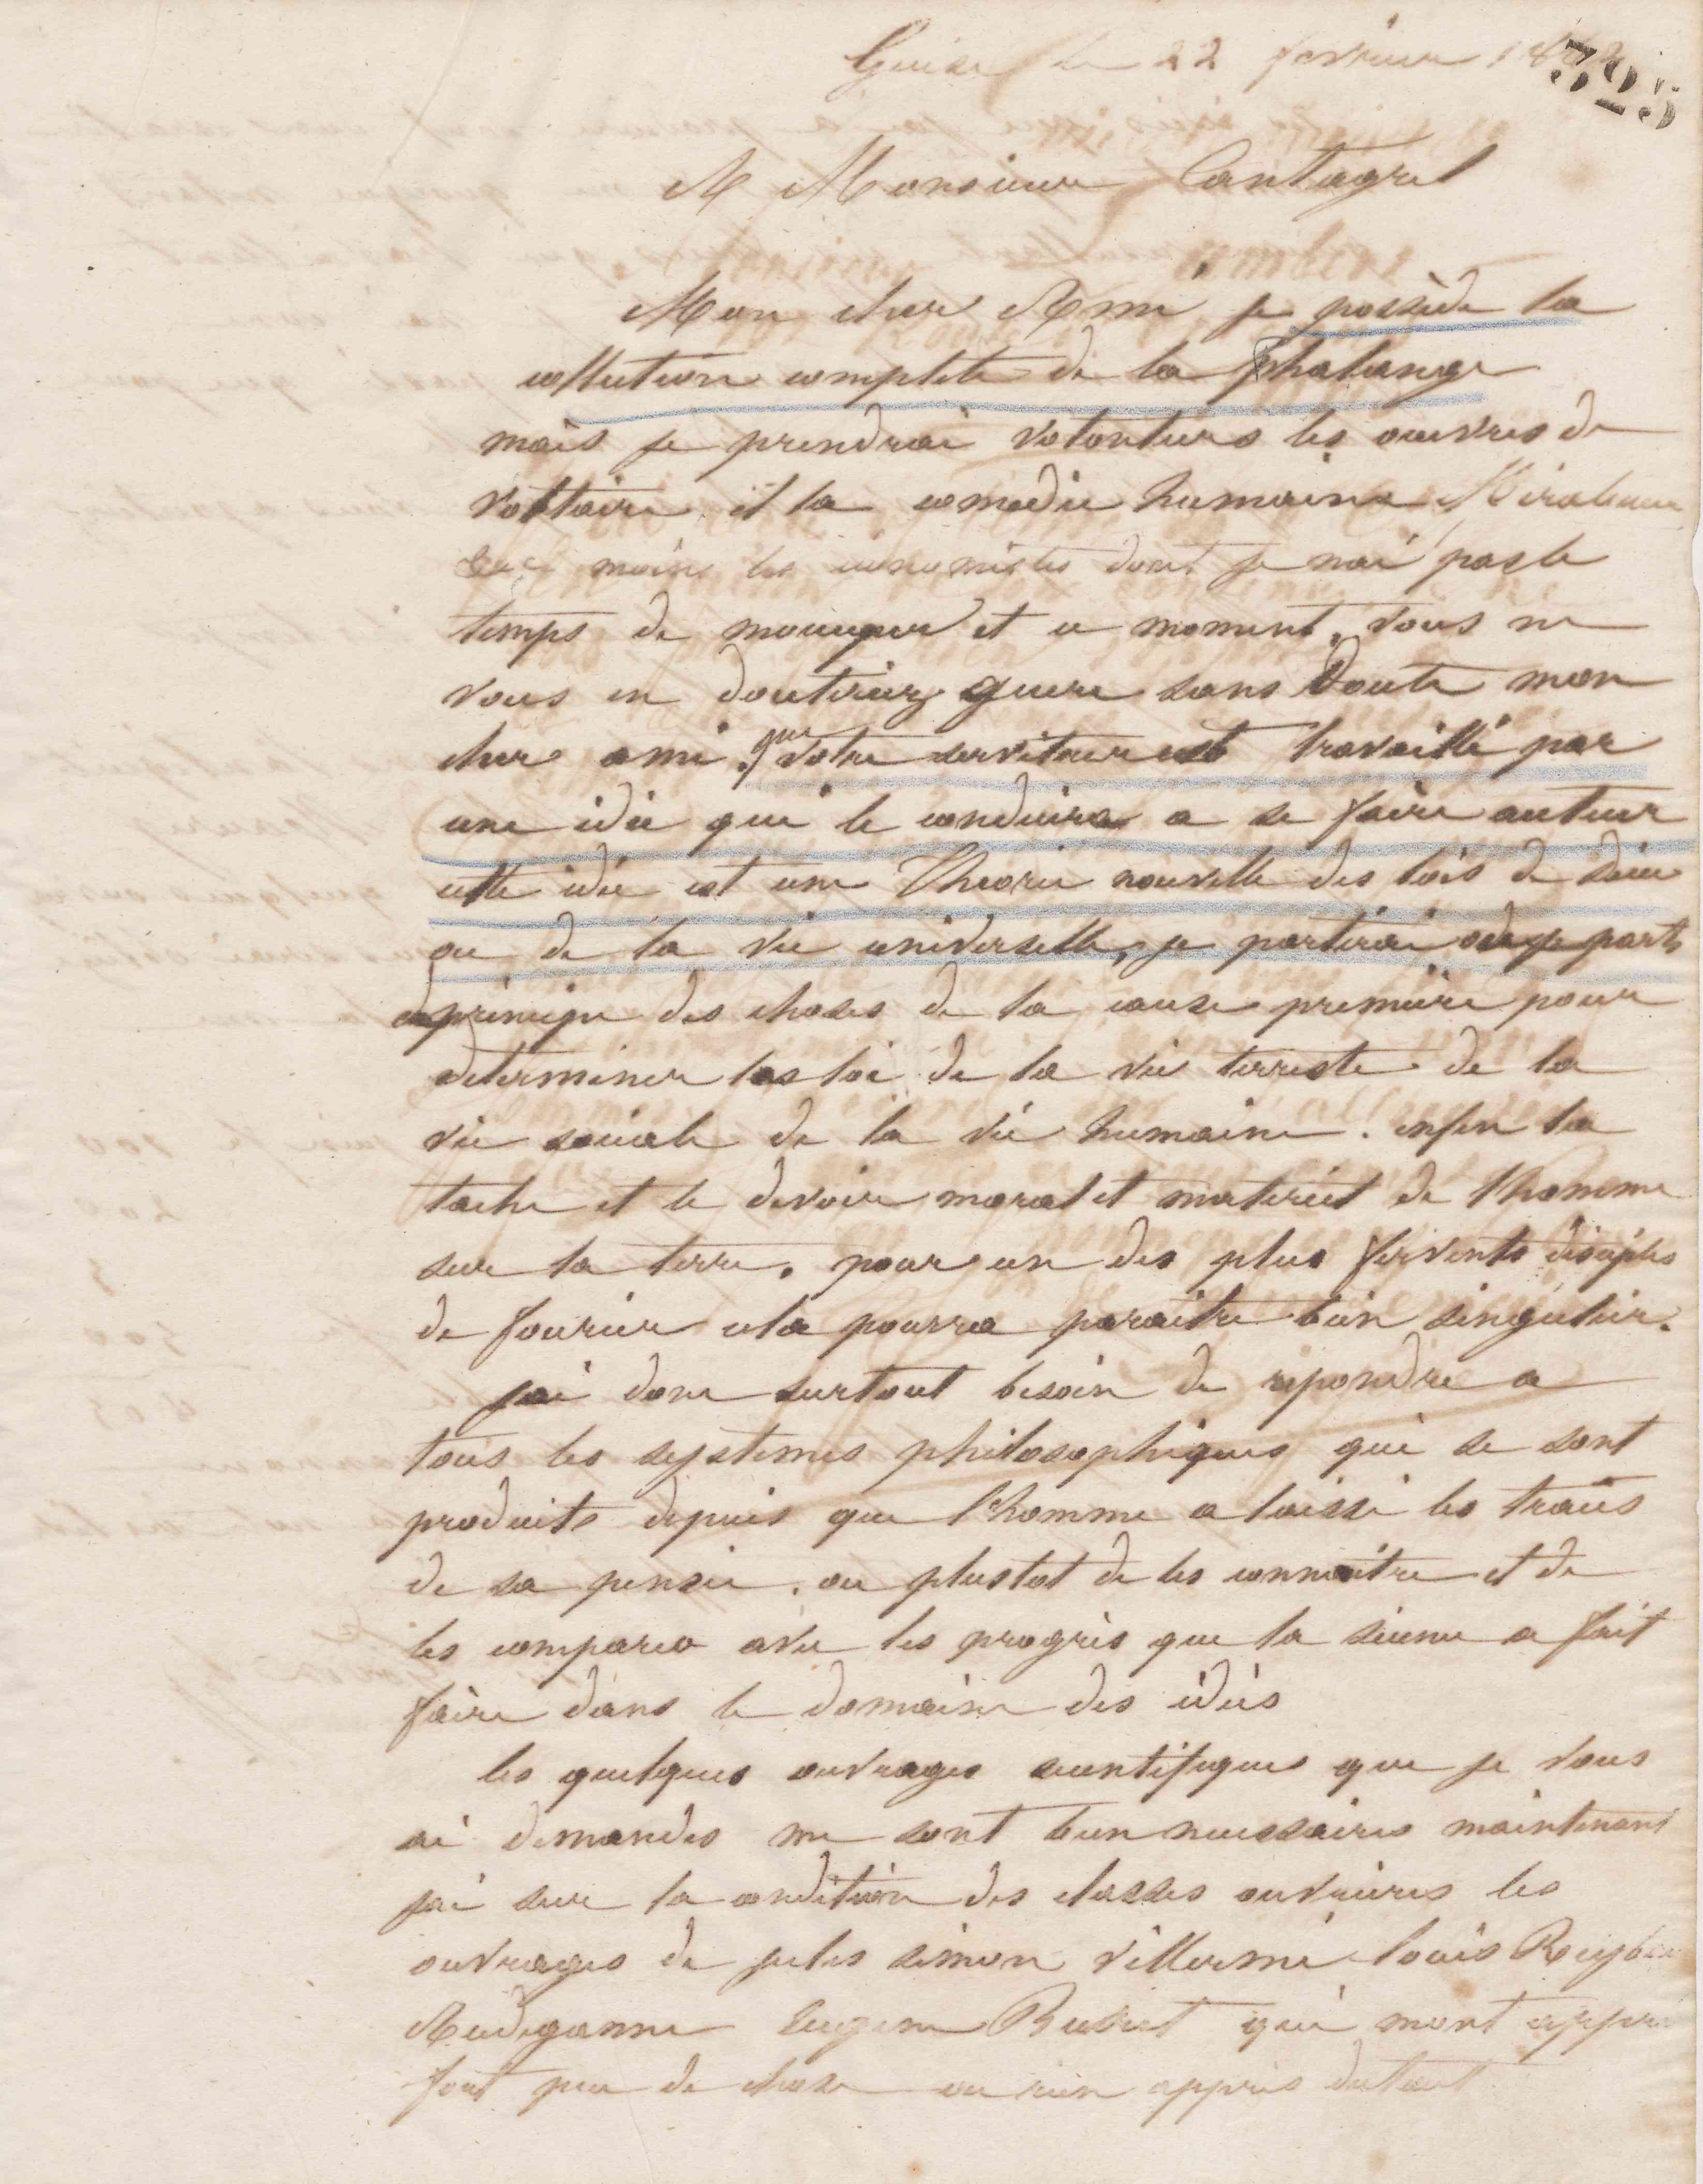 Guise le 22 fevrier 186
395
A Monsieur Cantagrel
Mon cher Ami je possède la
collection complete de la phalange
mais je prendrai volontiers les œuvres de
voltaire et la comedie humaine Mirabeau
moins les economistes dont je nai pas le
temps de moccuper et ce moment. vous ne
vous en douteriez guere sans doute mon
cher ami. que votre serviteur est travaillé par
une idée qui le conduira a se faire auteur
cette idée est une Theorie nouvelle des lois de dieu
ou de la vie universelle, je partirai je parts
principe des choses de la cause premiere pour
determiner les loi de la vie terrestre de la
vie sociale de la vie humaine. enfin la
tache et le devoir moral et materiel de l'homme
sur la terre. pour un des plus fervents disciples
de fourier cela pourra paraitre bien singulier.
jai donc surtout besoin de repondre a
tous les systemes philosophiques qui se sont
produits depuis que l'homme a laissé les traces
de sa pensée. ou plustot de les connaitre et de
les comparer avec les progrès que la science a fait
faire dans le domaine des idées
les quelques ouvrages scientifiques que je vous
ai demandes me sont bien necessaires maintenant
jai sur la condition des classes ouvrieres les
ouvrages de jules simon villermé louis Reybau
Audiganne Eugene Buret qui mont appris
fort peu de chose ou rien appris du tout